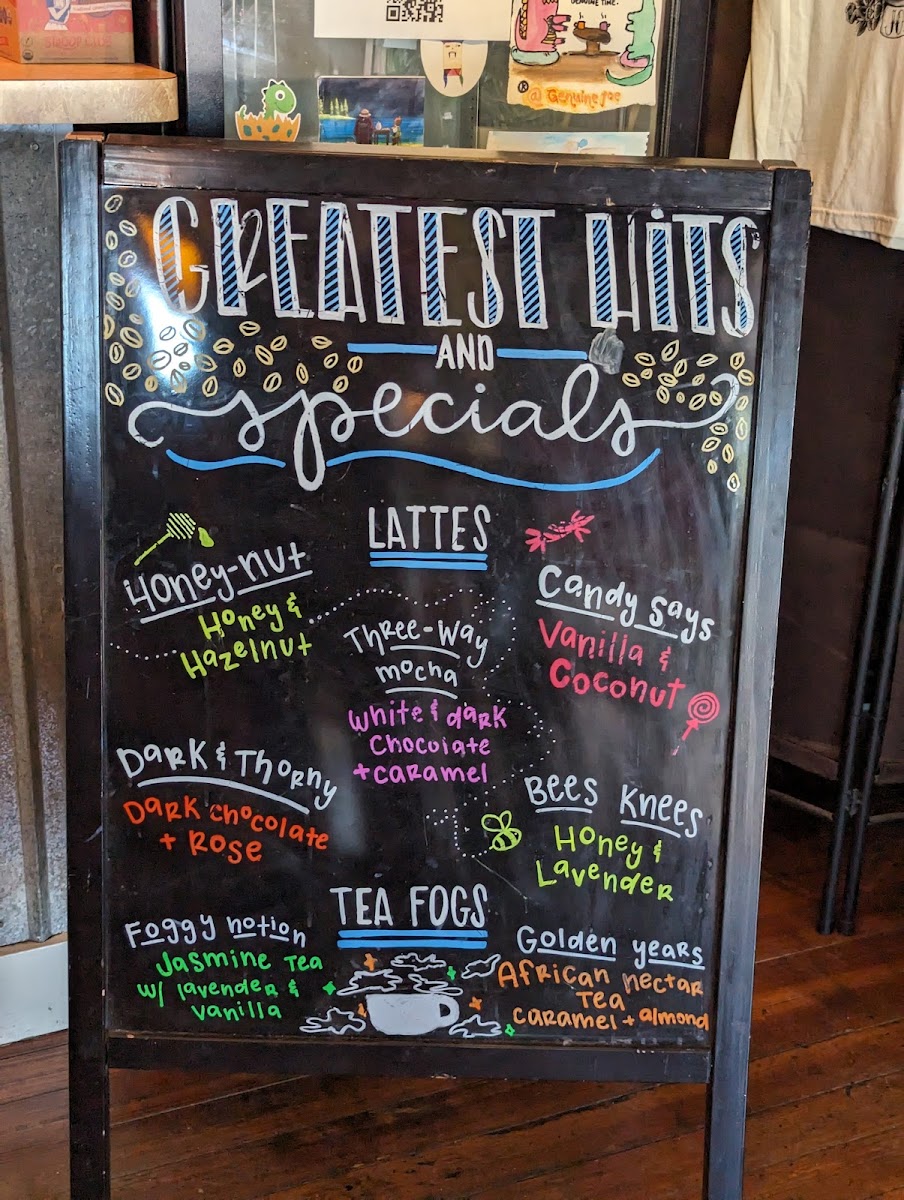 GENUINE TIME.
@Genuine Joe
GREATEST HITS
AND
specials
LATTES
Honey-nut
Honey &
Hazelnut
Candy says
Vanilla &
Coconut
Three-Way
mocha
White & dark
Chocolate
+ caramel
Dark & Thorny
Dark chocolate
+ Rose
Bees Knees
Honey &
Lavender
TEA FOGS
Foggy notion
Jasmine Tea
w/ lavender &
Vanilla
Golden years
African nectar
Tea
caramel + almond